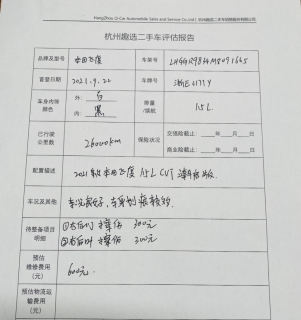 HangZhou Q-Car Automobile Sales and Service Co.,Ltd | 杭州趣选二手车销售服务有限公司
杭州趣选二手车评估报告
品牌及型号 本田飞度 车架号
首登日期 2021.9.22 车牌号
车身内饰颜色 外: 白 内: 黑 排量/续航 1.5L
已行驶公里数 26000km 保险状况 交强险截止: 年 月 日
商业险截止: 年 月 日
配置描述 2021款 本田飞度 1.5L CVT 潮跑版
车况及其他
待整备项目明细 ①右后门 300元
②右后叶 300元
预估维修费用(元) 600元
预估物流运输费用(元)